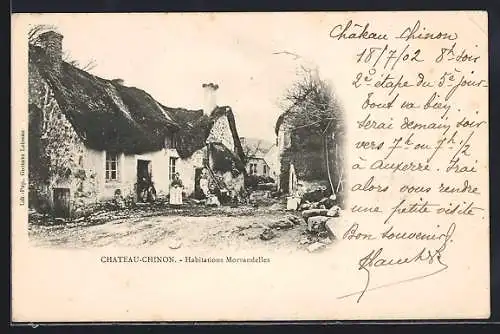 Château Chinon
18/7/02 8h soir
2e étape du 5e jour
tout va bien,
Serai demain soir
vers 7h ou 7h ½
à Auxerre. Irai
alors vous rendre
une petite visite
Bon souvenir
CHATEAU-CHINON. - Habitations Morvandelles
Lib.-Pap. Gustave